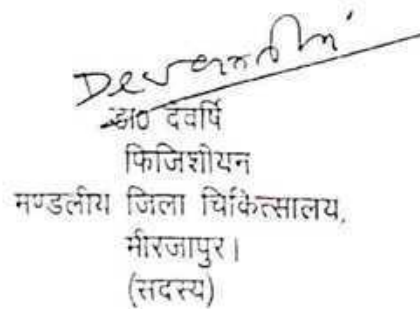 Devarshi
डा0 देवर्षि
फिजिशीयन
मण्डलीय जिला चिकित्सालय,
मीरजापुर।
(सदस्य)